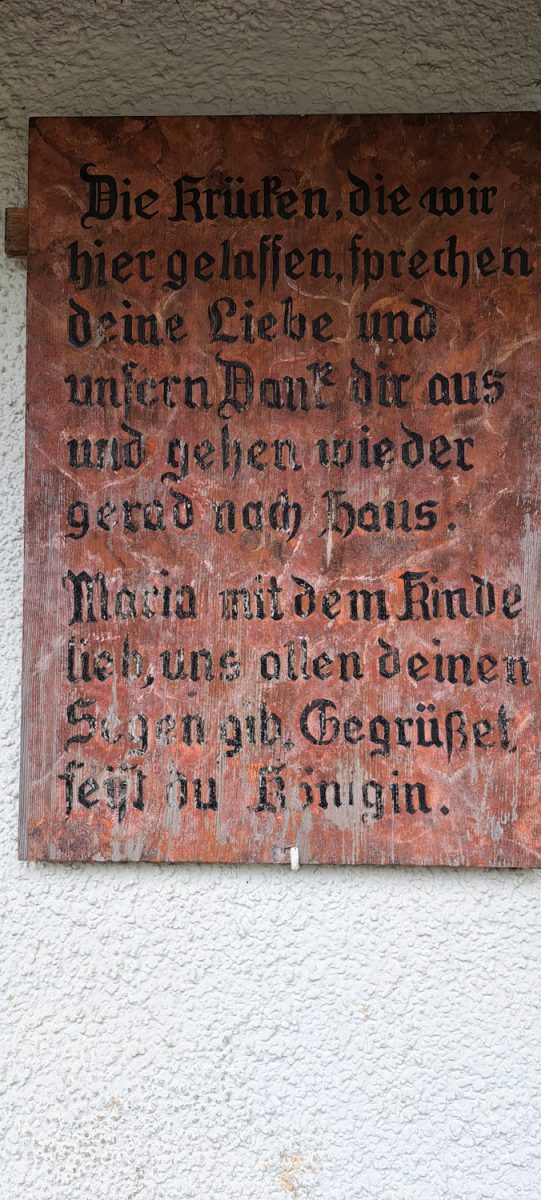 Die Krücken, die wir
hier gelassen, sprechen
deine Liebe und
unsern Dank dir aus
und gehen wieder
gerad nach Haus.
Maria mit dem Kinde
lieb, uns allen deinen
Segen gib. Gegrüßet
seist du Königin.